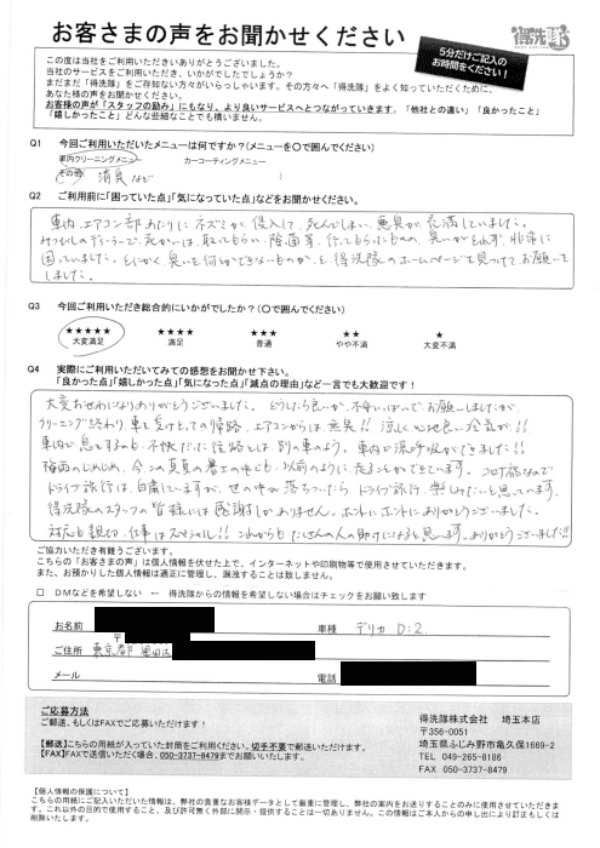 お客さまの声をお聞かせください
得洗隊
5分だけご記入の
お時間をください！
この度は当社をご利用いただきいありがとうございました。
当社のサービスをご利用いただき、いかがでしたでしょうか？
まだまだ「得洗隊」をご存知ない方々がいらっしゃいます。その方々へ「得洗隊」をよく知っていただくために、
あなた様の声をお聞かせください。
お客様の声が「スタッフの励み」にもなり、より良いサービスへとつながっていきます。「他社との違い」「良かったこと」
「嬉しかったこと」どんな些細なことでも構いません。
Q1 今回ご利用いただいたメニューは何ですか？(メニューを〇で囲んでください)
車内クリーニングメニュー カーコーティングメニュー
その他 消臭など )
Q2 ご利用前に「困っていた点」「気になっていた点」などをお聞かせください。
車内、エアコン部あたりに、ネズミが侵入して、死んでしまい、悪臭が充満していました。
みつびしのディーラーで、死がいは、取ってもらい、除菌等、行ってもらったものの、臭いがとれず、非常に
困っていました。とにかく、臭いを何とかできないものか、と得洗隊のホームページを見つけてお願いを
しました。
Q3 今回ご利用いただき総合的にいかがでしたか？(〇で囲んでください)
★★★★★ ★★★★ ★★★ ★★ ★
大変満足 満足 普通 やや不満 大変不満
Q4 実際にご利用いただいてみての感想をお聞かせ下さい。
「良かった点」「嬉しかった点」「気になった点」「減点の理由」など一言でも大歓迎です！
大変おせわになりありがとうございました。どうしたら良いか、不安いっぱいで、お願いしましたが、
クリーニング終わり、車を受けとっての帰路、エアコンからは、無臭!! 涼しく心地良い冷気が!!
車内で息をするのも、不快だった往路とは、別の車のよう。車内で深呼吸ができました!!
梅雨のじめじめ、今この真夏の暑さの中でも、以前のように、走ることができています。コロナ禍なので
ドライブ旅行は、自粛していますが、世の中が落ちついたら、ドライブ旅行、楽しみたいと思っています。
得洗隊のスタッフの皆様には感謝しかありません。ホントにホントにありがとうございました。
対応も親切、仕事はスペシャル!! これからもたくさんの人の助けになると思います。ありがとうございました!!
ご協力いただき有難うございます。
こちらの「お客さまの声」は個人情報を伏せた上で、インターネットや印刷物等で使用させていただきます。
また、お預かりした個人情報は適正に管理し、漏洩することは致しません。
□ DMなどを希望しない ← 得洗隊からの情報を希望しない場合はチェックをお願い致します
お名前 車種 デリカ D:2
〒
ご住所 東京都 墨田区
メール 電話
ご応募方法
ご郵送、もしくはFAXでご応募いただけます！
【郵送】こちらの用紙が入っていた封筒をご利用ください。切手不要で郵送いただけます。
【FAX】FAXで送信いただく場合、050-3737-8479までお願いいたします。
得洗隊株式会社 埼玉本店
〒356-0051
埼玉県ふじみ野市亀久保1669-2
TEL 049-265-8186
FAX 050-3737-8479
【個人情報の保護について】
こちらの用紙にご記入いただいた情報は、弊社の貴重なお客様データとして厳重に管理し、弊社の案内をお送りすることのみに使用させていただきま
す。これ以外の目的で使用すること、及び許可無く外部に開示・提供することは一切ありません。この情報はご本人からの申し出により訂正もしくは
削除いたします。